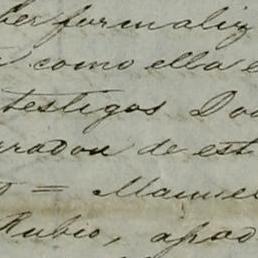 ber formaliz
como ella e
testigos Do
rrador de est
= Manuel
Rubio, apod